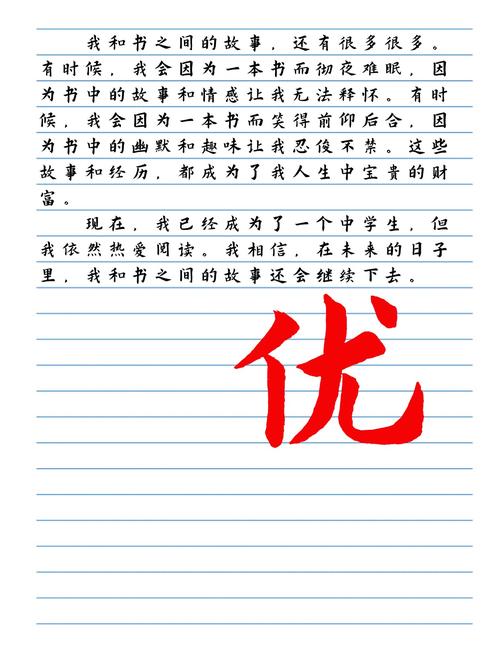 我和书之间的故事，还有很多很多。
有时候，我会因为一本书而彻夜难眠，因
为书中的故事和情感让我无法释怀。有时
候，我会因为一本书而笑得前仰后合，因
为书中的幽默和趣味让我忍俊不禁。这些
故事和经历，都成为了我人生中宝贵的财
富。
现在，我已经成为了一个中学生，但
我依然热爱阅读。我相信，在未来的日子
里，我和书之间的故事还会继续下去。
优